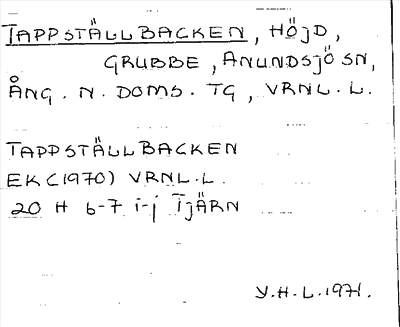 TAPPSTÄLLBACKEN, HÖJD,
GRUBBE, ANUNDSJÖ SN,
ÅNG. N. DOMS. TG, VRNL.L.
TAPPSTÄLLBACKEN
EK (1970) VRNL.L.
20 H 6-7 i-j TJÄRN
Y.H.L.1971.